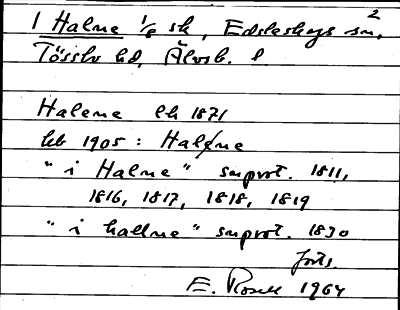 2
1 Halne 1/8 sk, Edsleskogs sn,
Tössbo hd, Älvsb. l.
Halene lk 1871
kb 1905: Halne
"i Halne" snprot. 1811,
1816, 1817, 1818, 1819
"i hallne" snprot. 1830
forts.
E. Rosell 1964